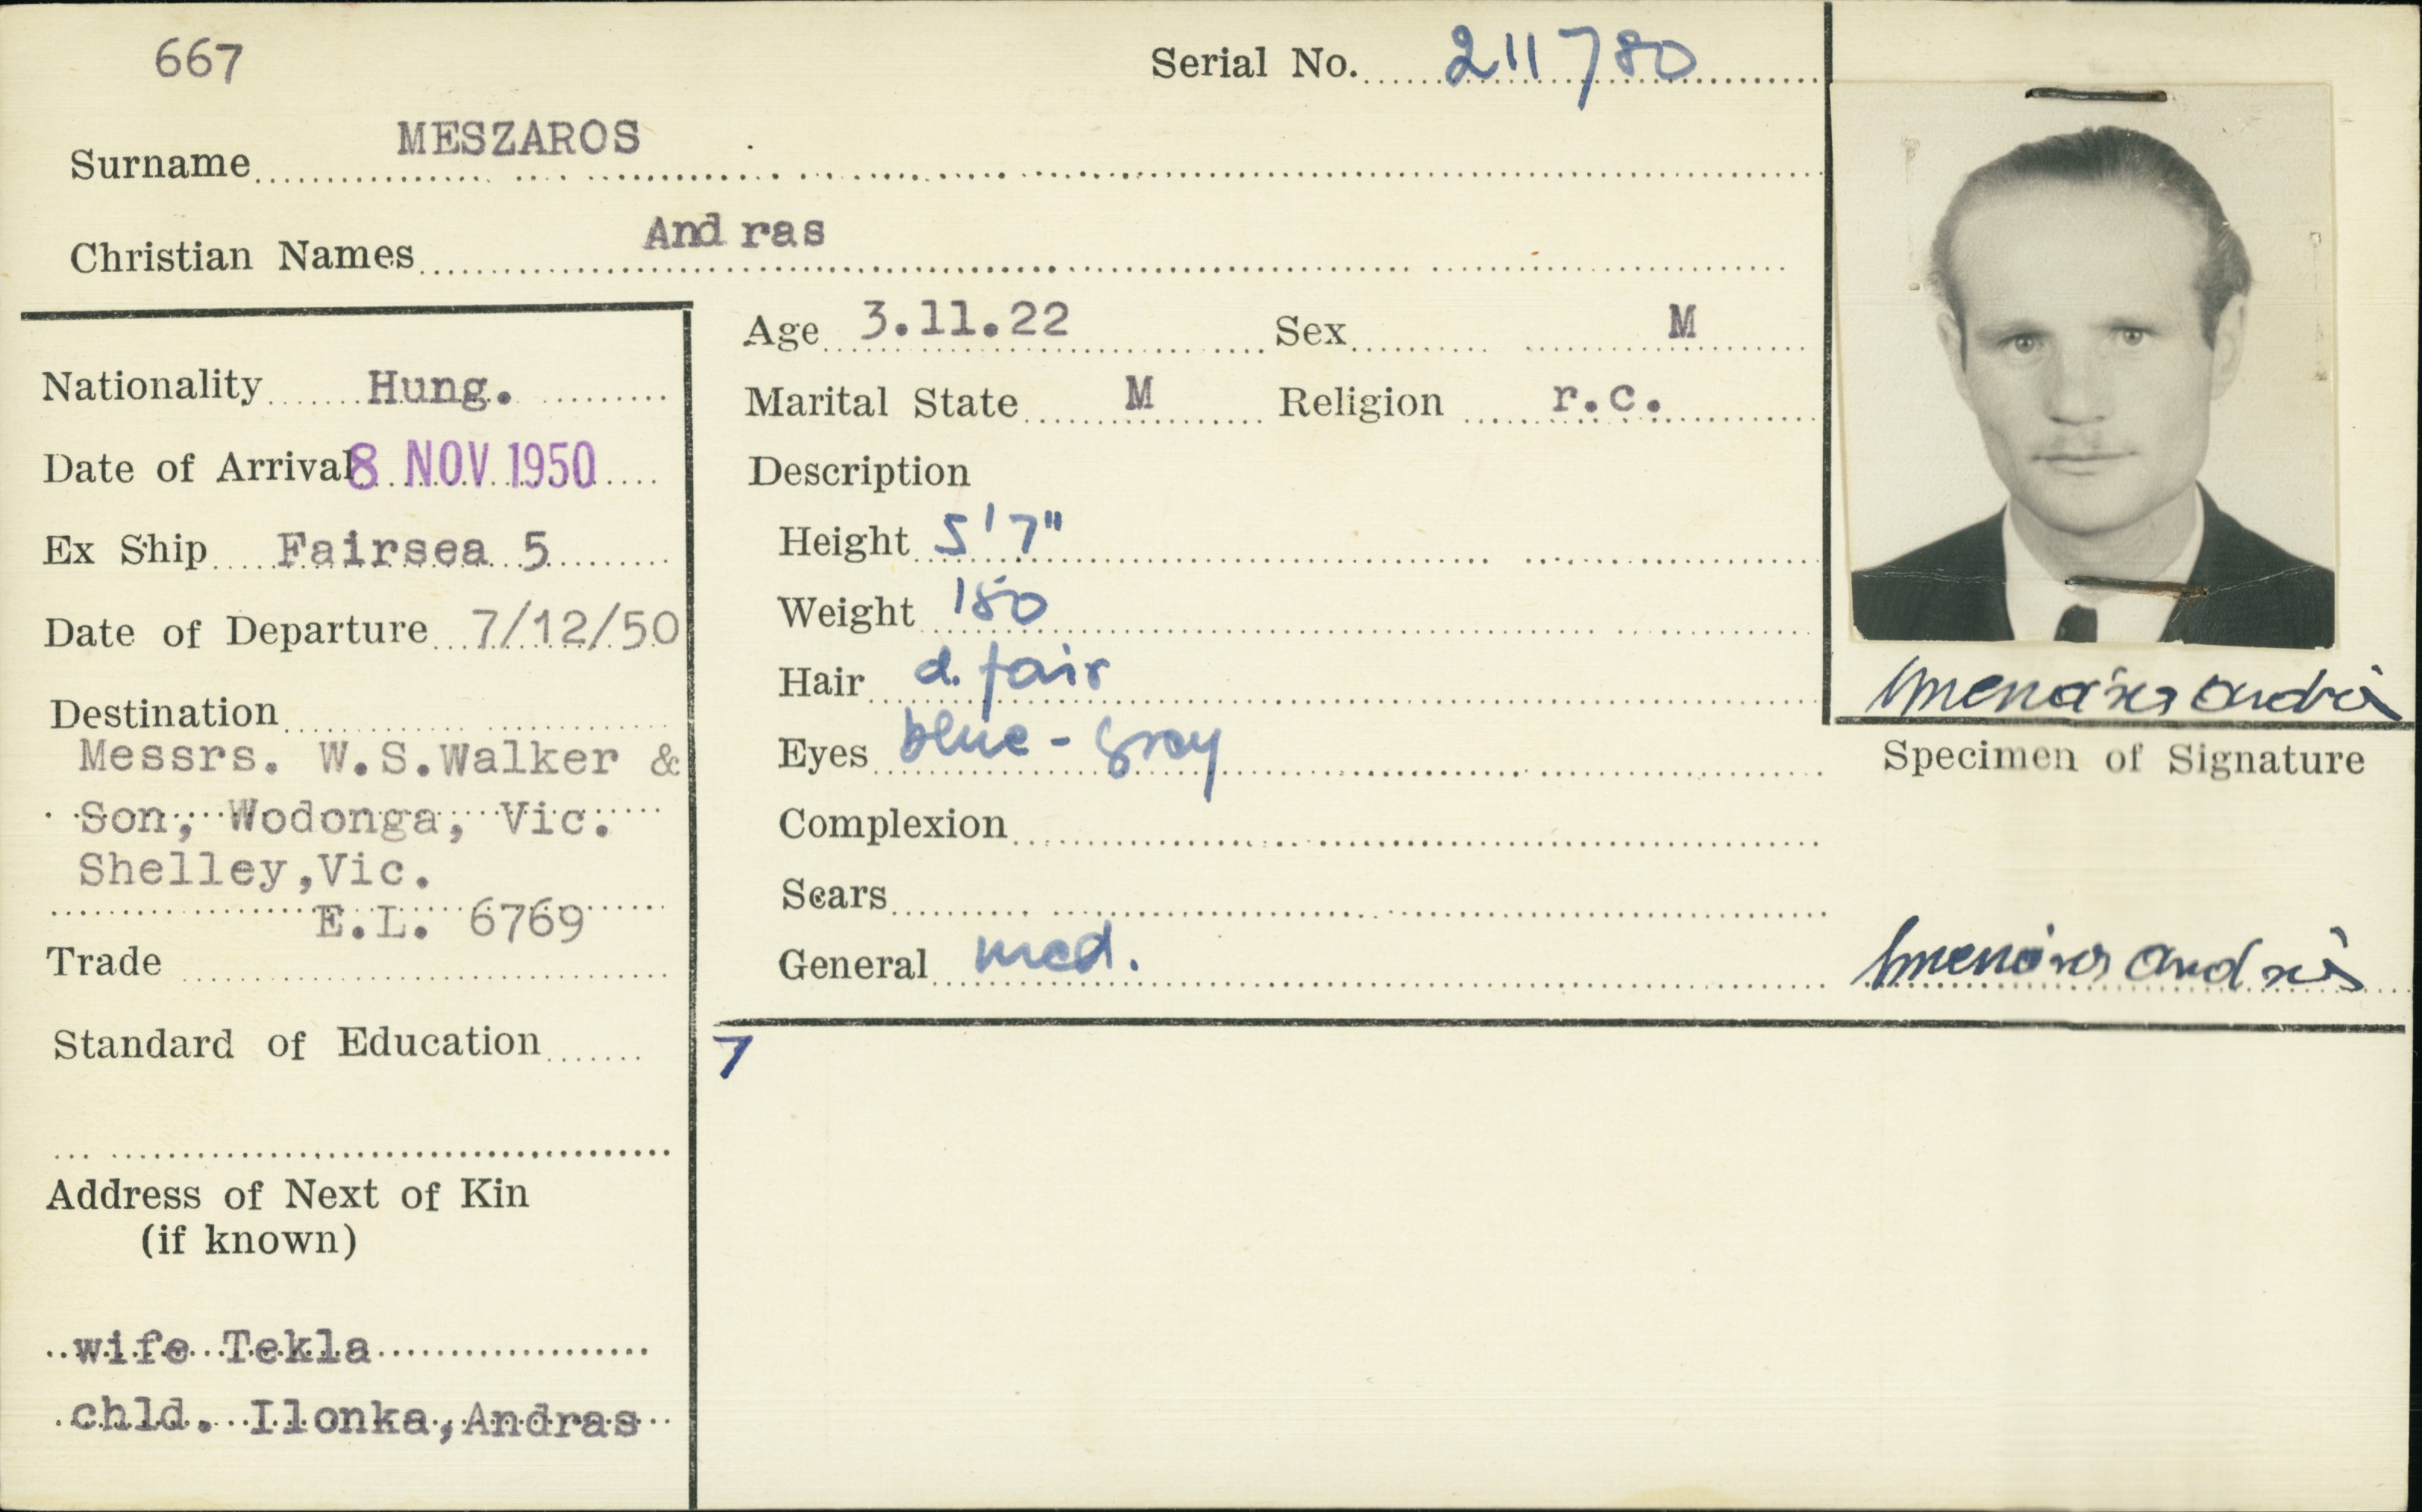 667
Serial No. 211780
Surname MESZAROS
Christian Names And ras
Nationality Hung.
Date of Arrival 8 NOV 1950
Ex Ship Fairsea 5
Date of Departure 7/12/50
Destination
Messrs. W.S.Walker &
Son, Wodonga, Vic.
Shelley,Vic.
E.L. 6769
Trade
Standard of Education
Address of Next of Kin
(if known)
wife Tekla
chld. Ilonka,Andras
Age 3.11.22 Sex M
Marital State M Religion r.c.
Description
Height 5'7"
Weight 150
Hair d. fair
Eyes blue - gray
Complexion
Scars
General med.
7
Specimen of Signature